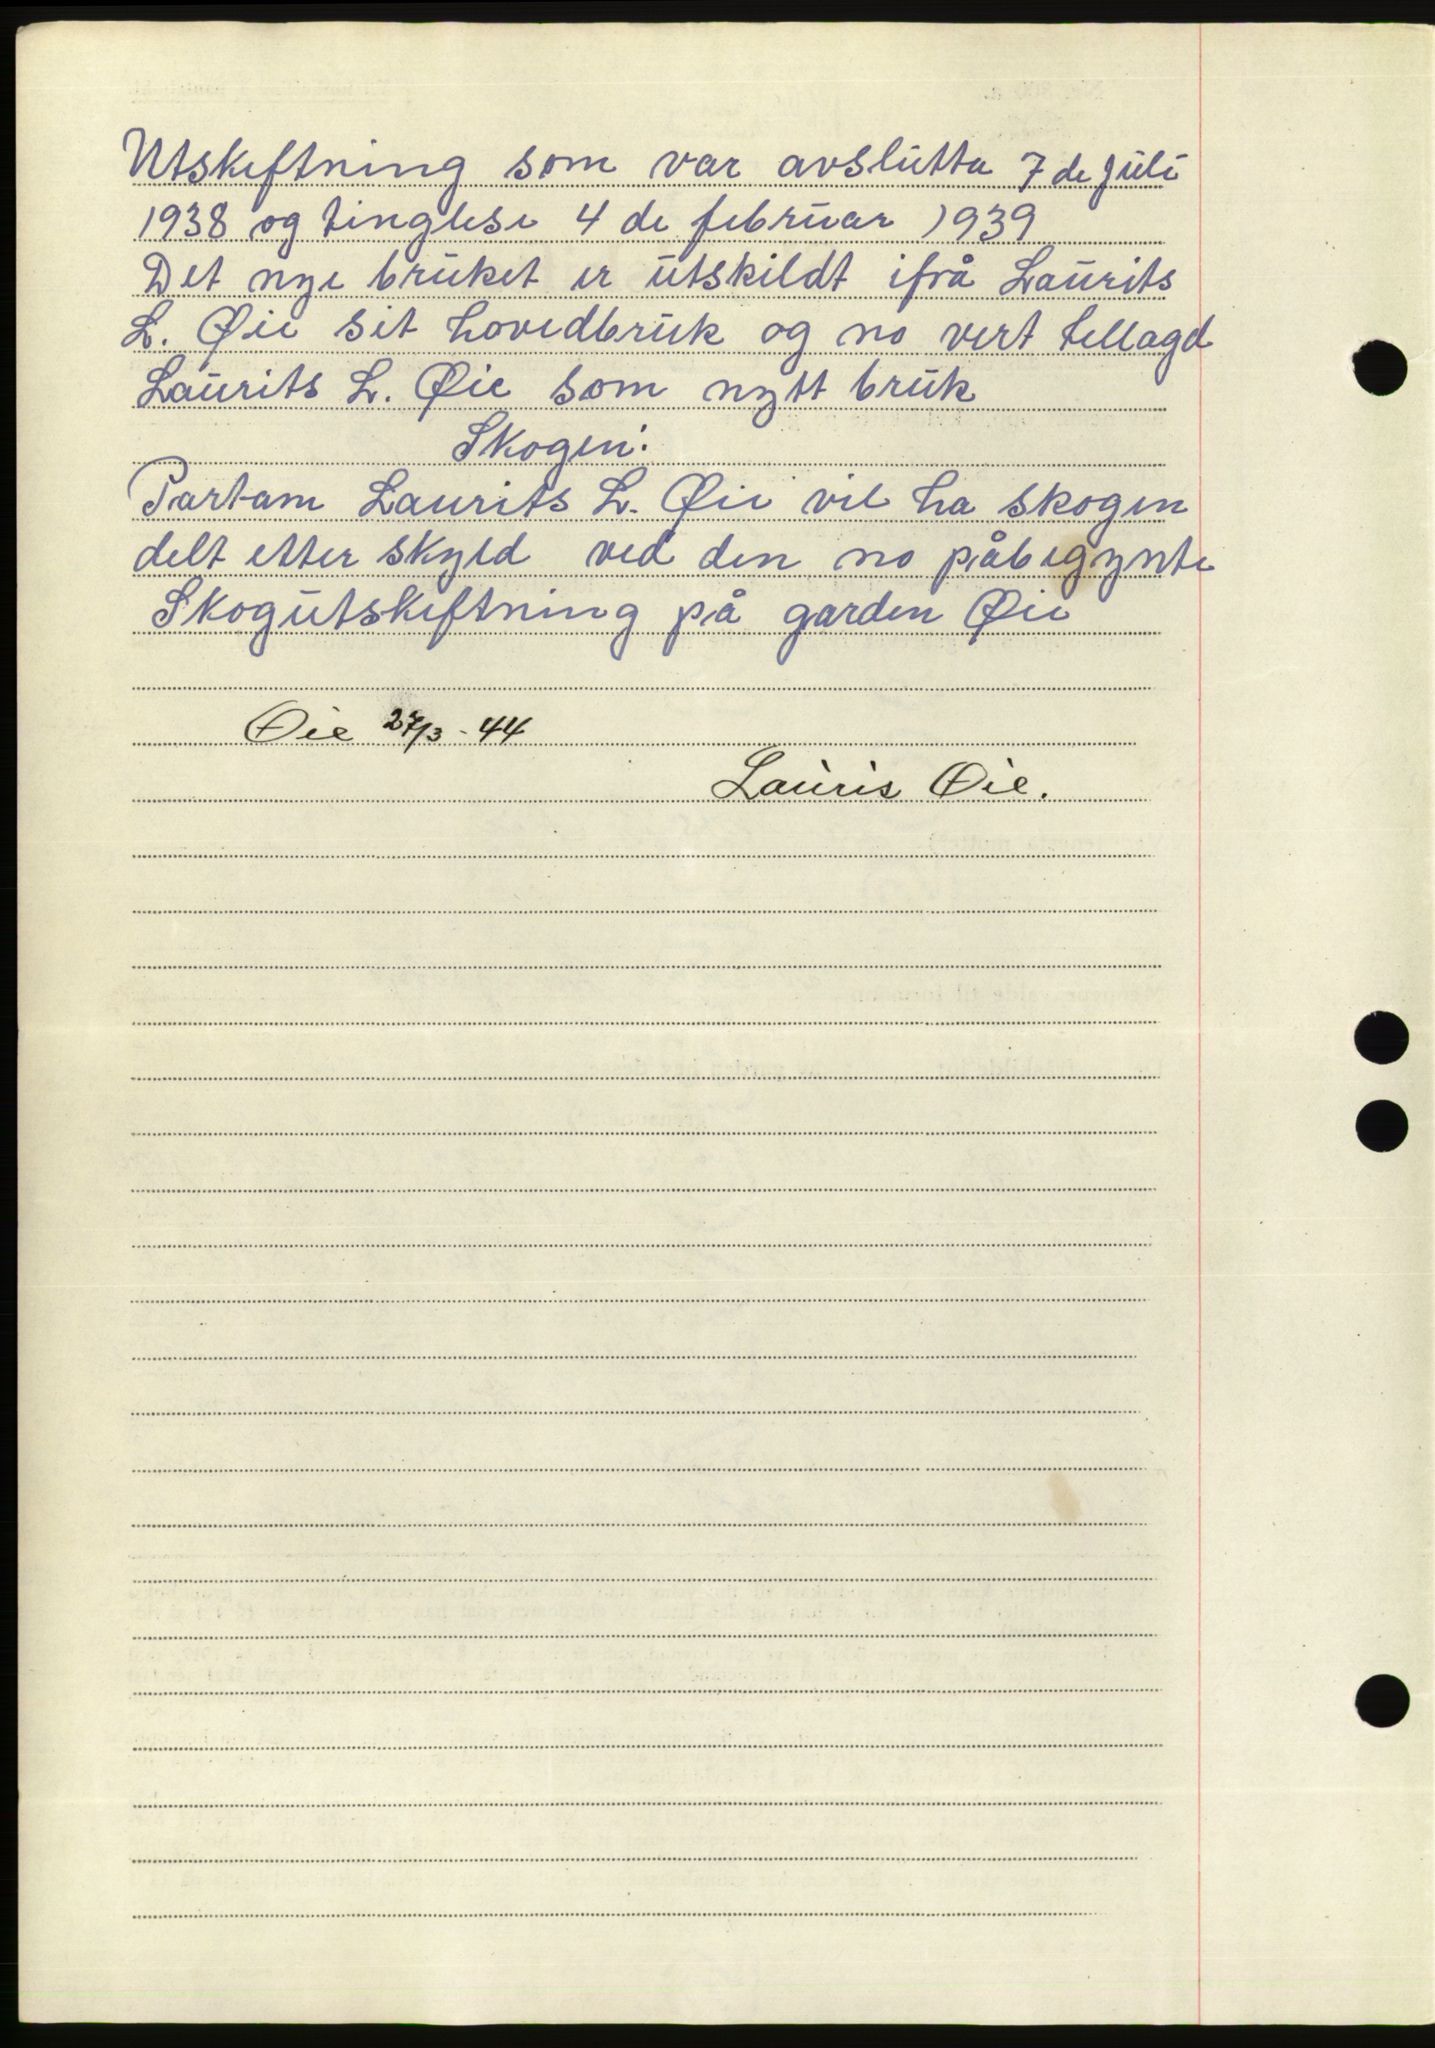 Utskiftning som var avslutta 7 de juli
1938 og tinglese 4 de februar 1939
Det nye bruket er utskildt ifrå Laurits
L. Øie sit hovedbruk og no vert tillagd
Laurits L. Øie som nytt bruk
Skogen:
Partam Laurits L. Øie vil ha skogen
delt etter skyld ved den no påbegynte
Skogutskiftning på garden Øie
Øie 27/3 - 44
Lauris Øie.